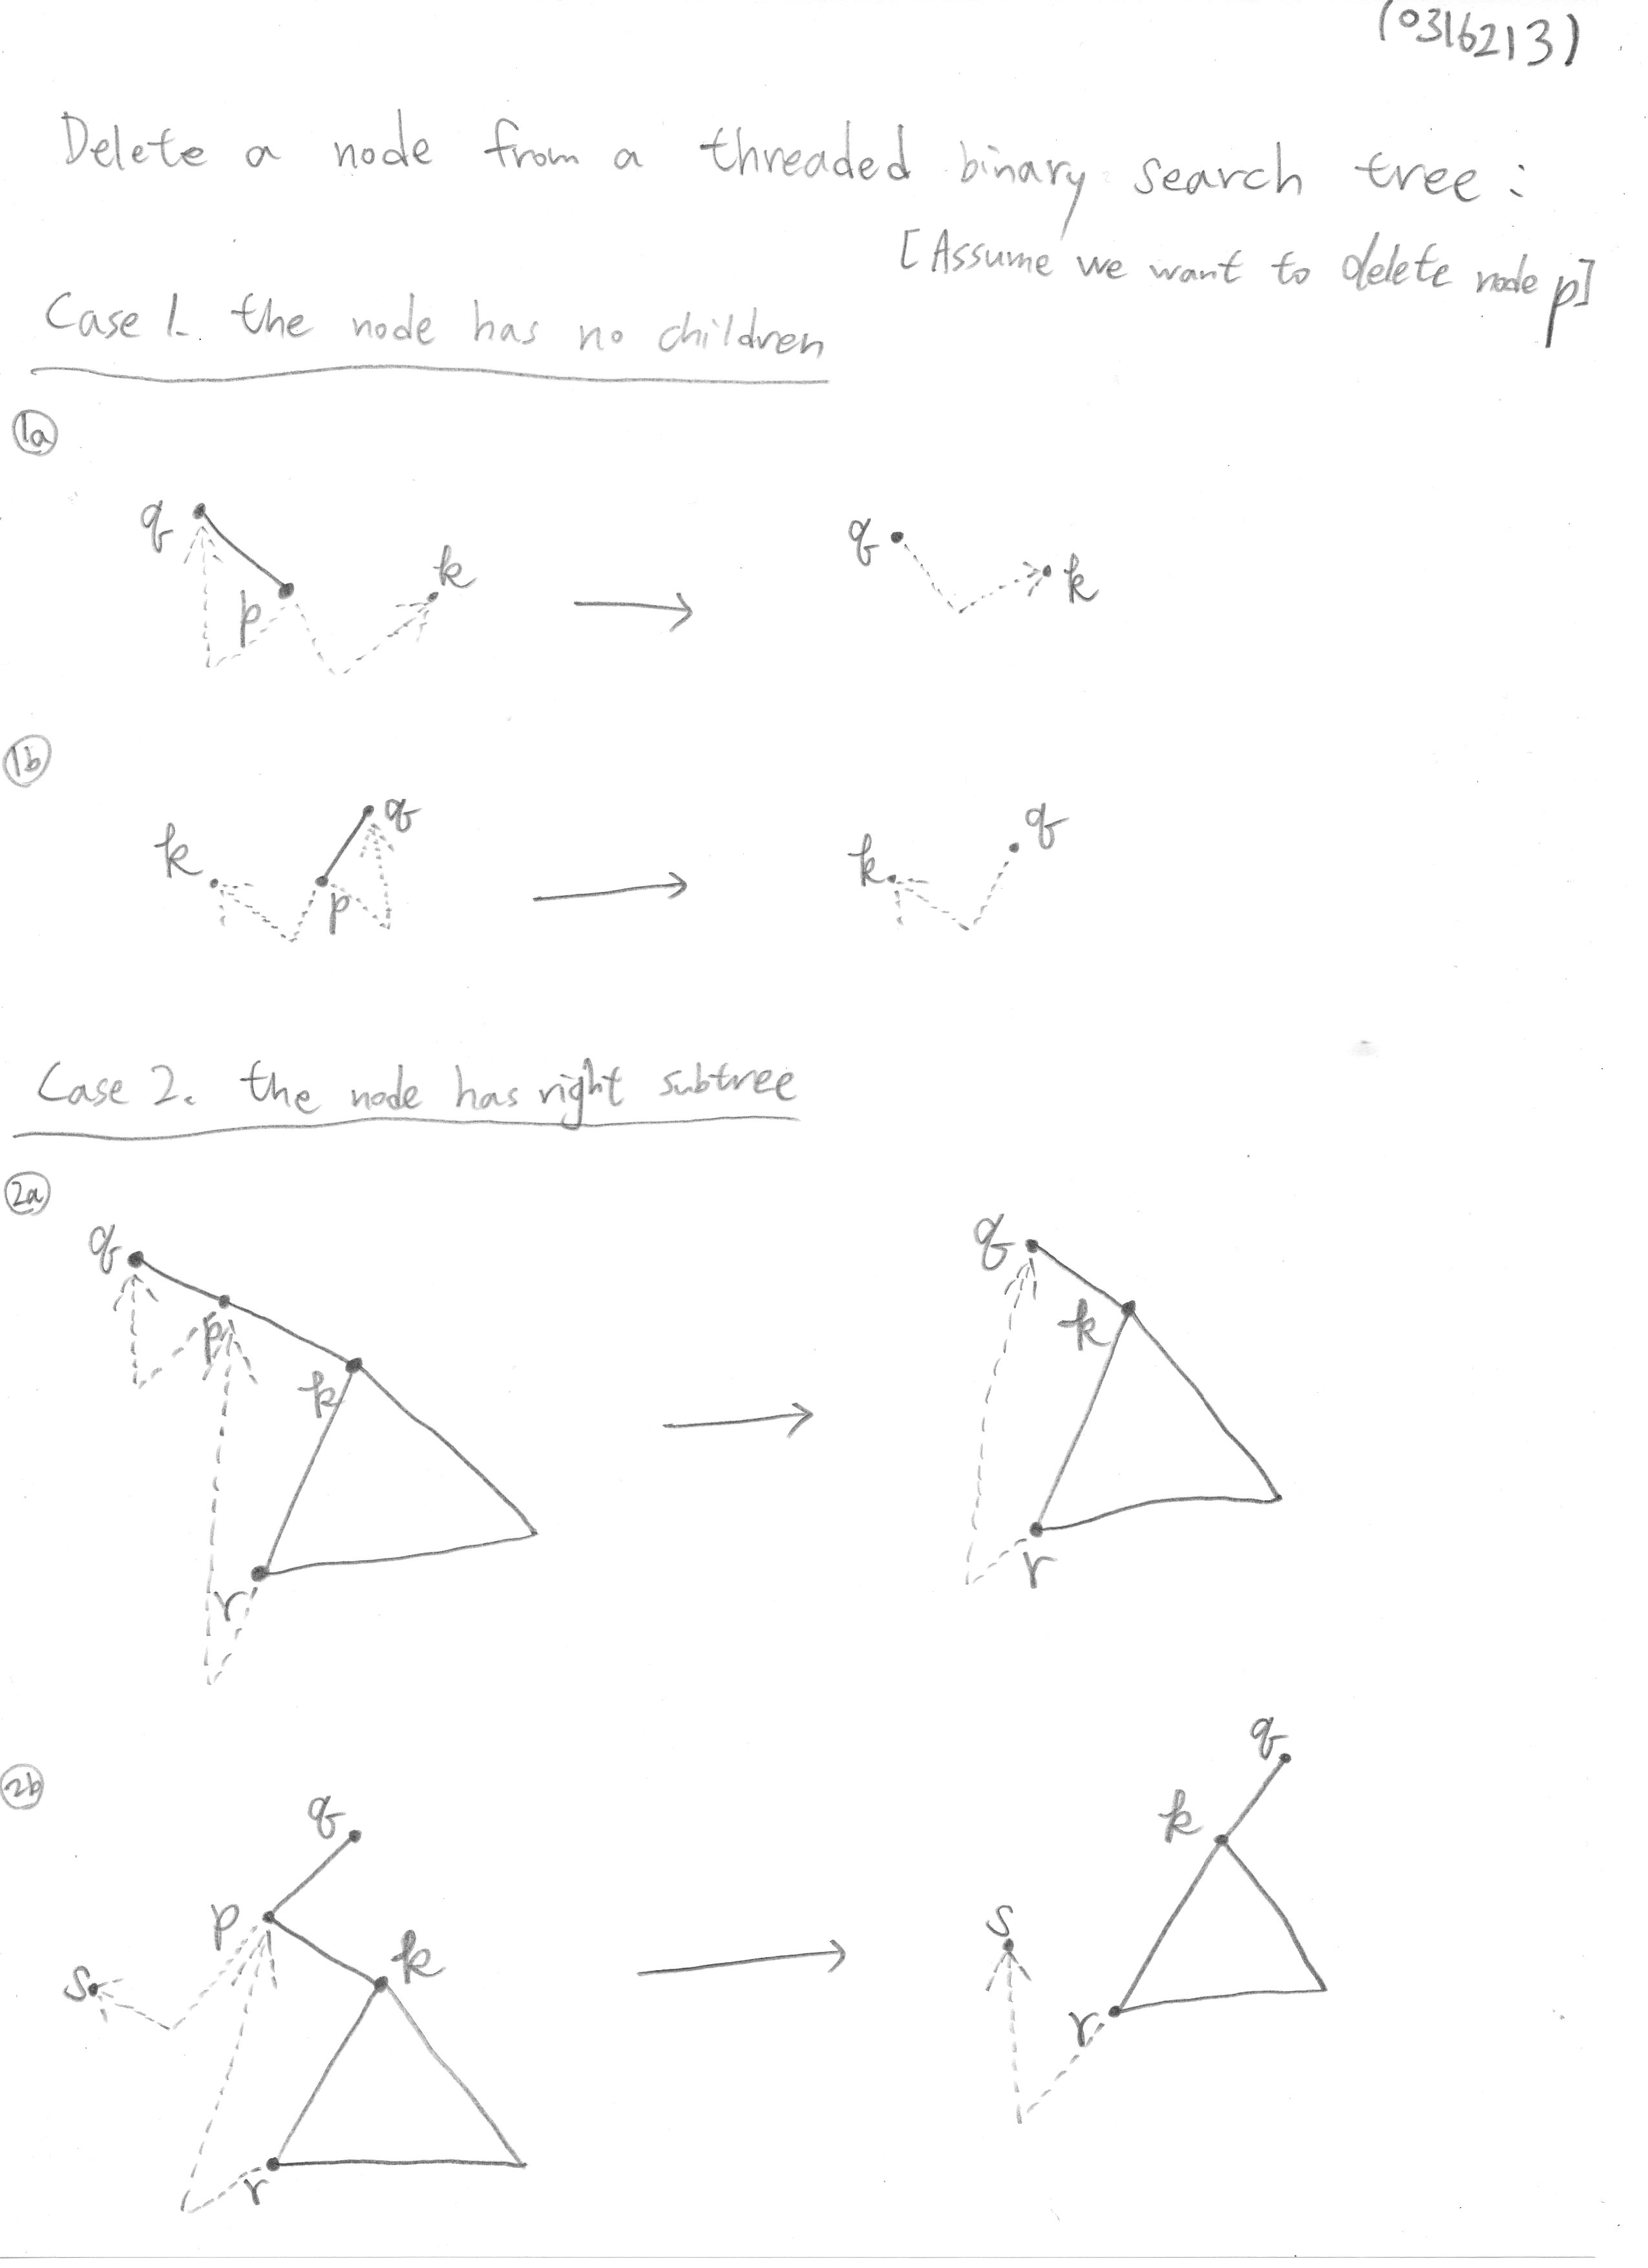 (0316213)
Delete a node from a threaded binary search tree :
[Assume we want to delete node p]
Case 1. the node has no children
1a
q
p
k
q
k
1b
k
p
q
k
q
Case 2. the node has right subtree
2a
q
p
k
r
q
k
r
2b
q
p
k
s
r
q
k
s
r